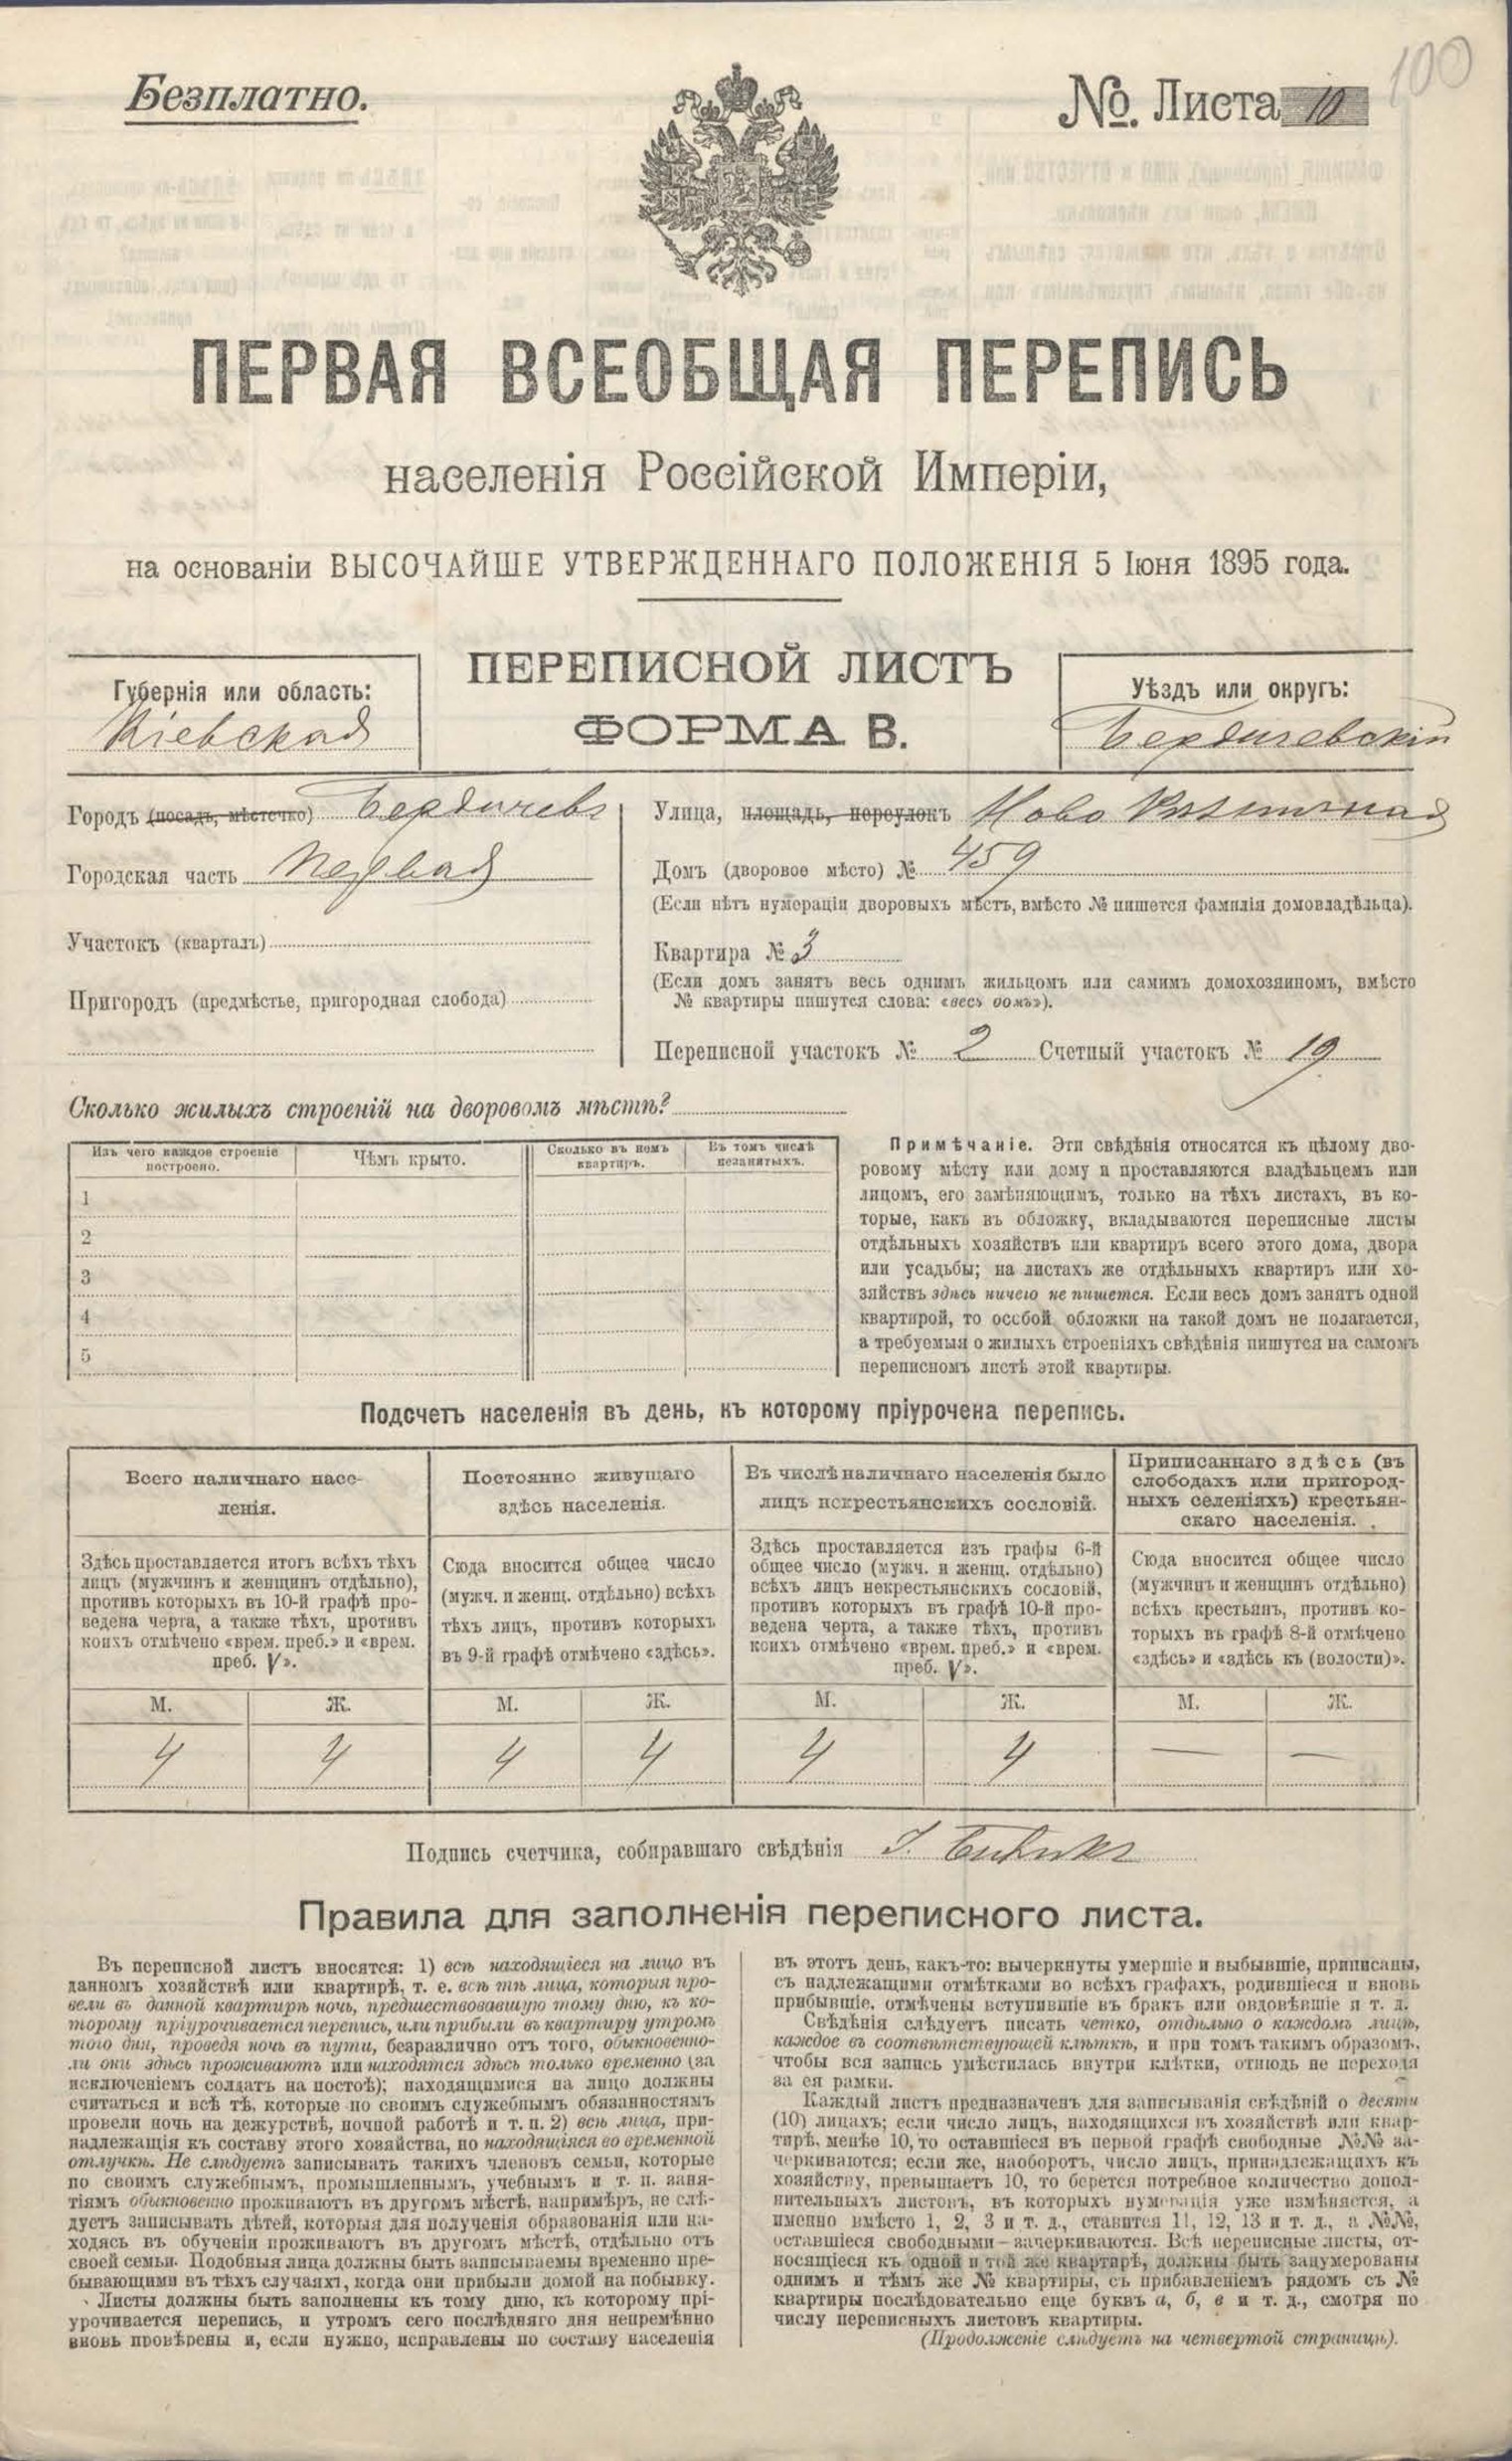 100
Безплатно.
№. Листа 10
ПЕРВАЯ ВСЕОБЩАЯ ПЕРЕПИСЬ
населенія Россійской Имперіи,
на основаніи ВЫСОЧАЙШЕ УТВЕРЖДЕННАГО ПОЛОЖЕНІЯ 5 Іюня 1895 года.
ПЕРЕПИСНОЙ ЛИСТЪ
ФОРМА В.
Губернія или область:
Кіевская
Уѣздъ или округъ:
Бердичевскій
Городъ (посадъ, мѣстечко) Бердичевъ
Городская часть Первая
Участокъ (кварталъ)
Пригородъ (предмѣстье, пригородная слобода)
Улица, площадь, переулокъ Ново
Домъ (дворовое мѣсто) № 459
(Если нѣтъ нумераціи дворовыхъ мѣстъ, вмѣсто № пишется фамилія домовладѣльца).
Квартира № 3
(Если домъ занятъ весь однимъ жильцомъ или самимъ домохозяиномъ, вмѣсто
№ квартиры пишутся слова: «весь домъ»).
Переписной участокъ № 2 Счетный участокъ № 19
Сколько жилыхъ строеній на дворовомъ мѣстѣ?
Изъ чего каждое строеніе
построено.
Чѣмъ крыто.
Сколько въ немъ
квартиръ.
Въ томъ числѣ
незанятыхъ.
1
2
3
4
5
Примѣчаніе. Эти свѣдѣнія относятся къ цѣлому дво-
ровому мѣсту или дому и проставляются владѣльцемъ или
лицомъ, его замѣняющимъ, только на тѣхъ листахъ, въ ко-
торые, какъ въ обложку, вкладываются переписные листы
отдѣльныхъ хозяйствъ или квартиръ всего этого дома, двора
или усадьбы; на листахъ же отдѣльныхъ квартиръ или хо-
зяйствъ здѣсь ничего не пишется. Если весь домъ занятъ одной
квартирой, то особой обложки на такой домъ не полагается,
а требуемыя о жилыхъ строеніяхъ свѣдѣнія пишутся на самомъ
переписномъ листѣ этой квартиры.
Подсчетъ населенія въ день, къ которому пріурочена перепись.
Всего наличнаго насе-
ленія.
Постоянно живущаго
здѣсь населенія.
Въ числѣ наличнаго населенія было
лицъ некрестьянскихъ сословій.
Приписаннаго здѣсь (въ
слободахъ или пригород-
ныхъ селеніяхъ) крестьян-
скаго населенія.
Здѣсь проставляется итогъ всѣхъ тѣхъ
лицъ (мужчинъ и женщинъ отдѣльно),
противъ которыхъ въ 10-й графѣ про-
ведена черта, а также тѣхъ, противъ
коихъ отмѣчено «врем. преб.» и «врем.
преб. V».
Сюда вносится общее число
(мужч. и женщ. отдѣльно) всѣхъ
тѣхъ лицъ, противъ которыхъ
въ 9-й графѣ отмѣчено «здѣсь».
Здѣсь проставляется изъ графы 6-й
общее число (мужч. и женщ. отдѣльно)
всѣхъ лицъ некрестьянскихъ сословій,
противъ которыхъ въ графѣ 10-й про-
ведена черта, а также тѣхъ, противъ
коихъ отмѣчено «врем. преб.» и «врем.
преб. V».
Сюда вносится общее число
(мужчинъ и женщинъ отдѣльно)
всѣхъ крестьянъ, противъ ко-
торыхъ въ графѣ 8-й отмѣчено
«здѣсь» и «здѣсь къ (волости)».
М. Ж. М. Ж. М. Ж. М. Ж.
4 4 4 4 4 4 — —
Подпись счетчика, собиравшаго свѣдѣнія
Правила для заполненія переписного листа.
Въ переписной листъ вносятся: 1) всѣ находящіеся на лицо въ
данномъ хозяйствѣ или квартирѣ, т. е. всѣ тѣ лица, которыя про-
вели въ данной квартирѣ ночь, предшествовавшую тому дню, къ ко-
торому пріурочивается перепись, или прибыли въ квартиру утромъ
того дня, проведя ночь въ пути, безразлично отъ того, обыкновенно-
ли они здѣсь проживаютъ или находятся здѣсь только временно (за
исключеніемъ солдатъ на постоѣ); находящимися на лицо должны
считаться и всѣ тѣ, которые по своимъ служебнымъ обязанностямъ
провели ночь на дежурствѣ, ночной работѣ и т. п. 2) всѣ лица, при-
надлежащія къ составу этого хозяйства, но находящіяся во временной
отлучкѣ. Не слѣдуетъ записывать такихъ членовъ семьи, которые
по своимъ служебнымъ, промышленнымъ, учебнымъ и т. п. заня-
тіямъ обыкновенно проживаютъ въ другомъ мѣстѣ, напримѣръ, не слѣ-
дуетъ записывать дѣтей, которыя для полученія образованія или на-
ходясь въ обученіи проживаютъ въ другомъ мѣстѣ, отдѣльно отъ
своей семьи. Подобныя лица должны быть записываемы временно пре-
бывающими въ тѣхъ случаяхъ, когда они прибыли домой на побывку.
Листы должны быть заполнены къ тому дню, къ которому прі-
урочивается перепись, и утромъ сего послѣдняго дня непремѣнно
вновь провѣрены и, если нужно, исправлены по составу населенія
въ этотъ день, какъ-то: вычеркнуты умершіе и выбывшіе, приписаны,
съ надлежащими отмѣтками во всѣхъ графахъ, родившіеся и вновь
прибывшіе, отмѣчены вступившіе въ бракъ или овдовѣвшіе и т. д.
Свѣдѣнія слѣдуетъ писать четко, отдѣльно о каждомъ лицѣ,
каждое въ соотвѣтствующей клѣткѣ, и при томъ такимъ образомъ,
чтобы вся запись умѣстилась внутри клѣтки, отнюдь не переходя
за ея рамки.
Каждый листъ предназначенъ для записыванія свѣдѣній о десяти
(10) лицахъ; если число лицъ, находящихся въ хозяйствѣ или квар-
тирѣ, менѣе 10, то оставшіеся въ первой графѣ свободные №№ за-
черкиваются; если же, наоборотъ, число лицъ, принадлежащихъ къ
хозяйству, превышаетъ 10, то берется потребное количество допол-
нительныхъ листовъ, въ которыхъ нумерація уже измѣняется, а
именно вмѣсто 1, 2, 3 и т. д., ставится 11, 12, 13 и т. д., а №№,
оставшіеся свободными—зачеркиваются. Всѣ переписные листы, от-
носящіеся къ одной и той же квартирѣ, должны быть занумерованы
однимъ и тѣмъ же № квартиры, съ прибавленіемъ рядомъ съ №
квартиры послѣдовательно еще буквъ а, б, в и т. д., смотря по
числу переписныхъ листовъ квартиры.
(Продолженіе слѣдуетъ на четвертой страницѣ).